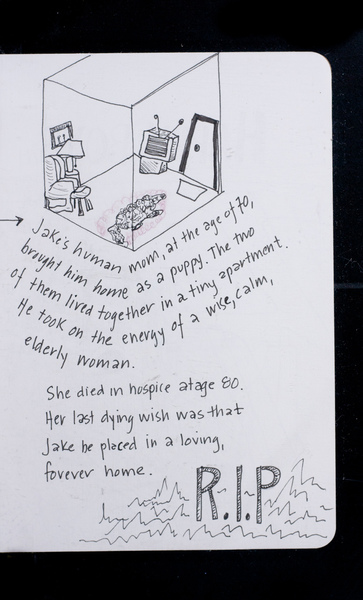 Jake's human mom, at the age of 70,
brought him home as a puppy. The two
of them lived together in a tiny apartment.
He took on the energy of a wise, calm,
elderly woman.
She died in hospice at age 80.
Her last dying wish was that
Jake be placed in a loving,
forever home.
R.I.P